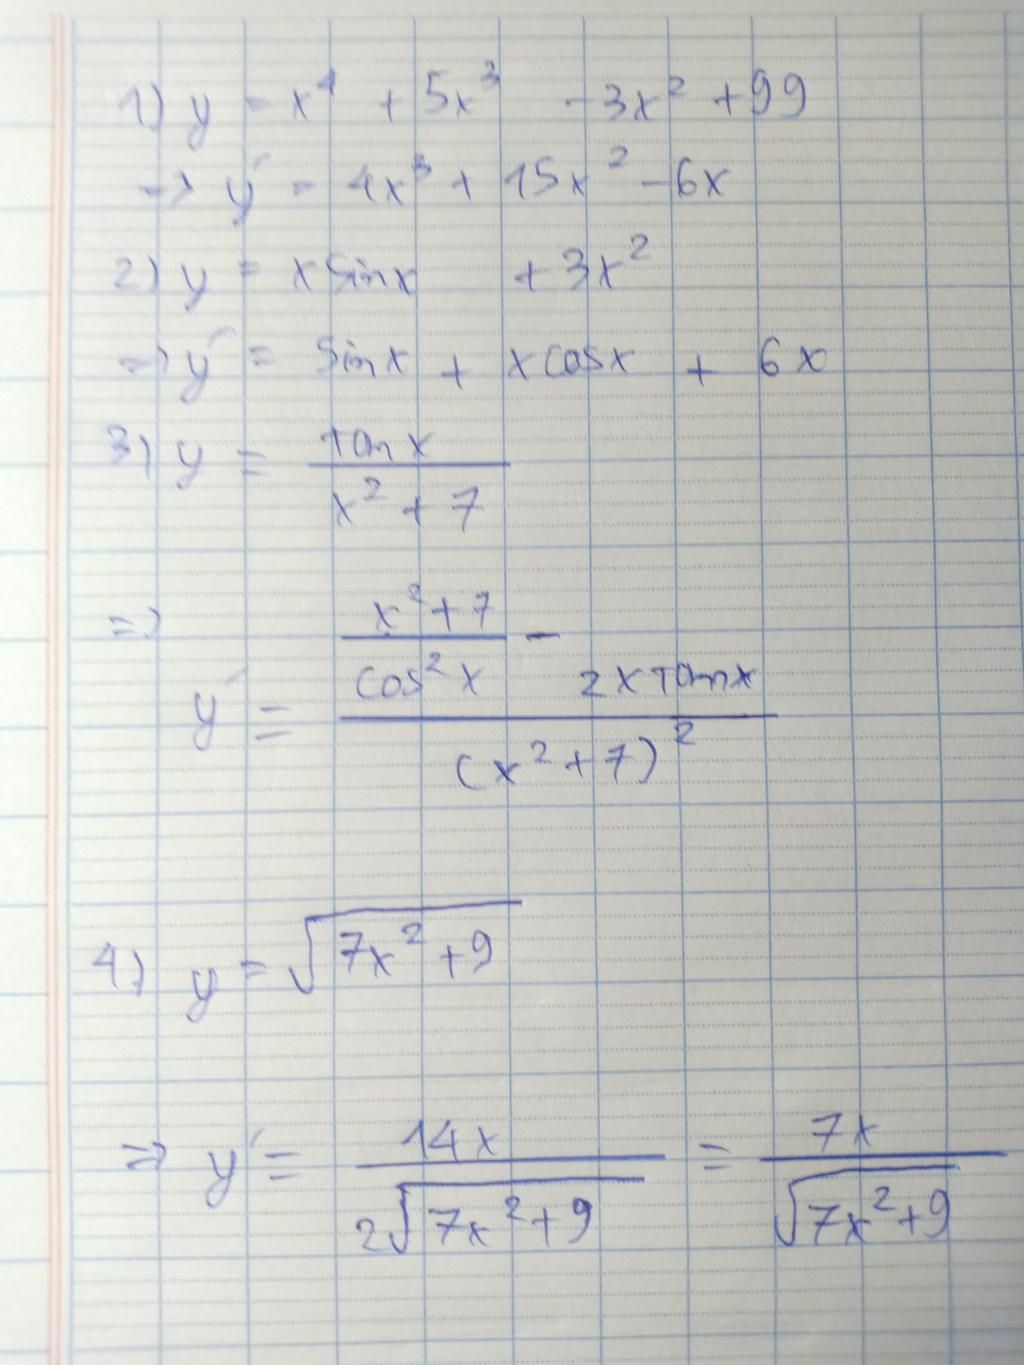 1) y = x⁴ + 5x³ - 3x² + 99
=> y' = 4x³ + 15x² - 6x
2) y = x sin x + 3x²
=> y' = sin x + x cos x + 6x
3) y = tan x / (x² + 7)
=> y' = ((x² + 7)/cos² x - 2x tan x) / (x² + 7)²
4) y = √(7x² + 9)
=> y' = 14x / (2√(7x² + 9)) = 7x / √(7x² + 9)